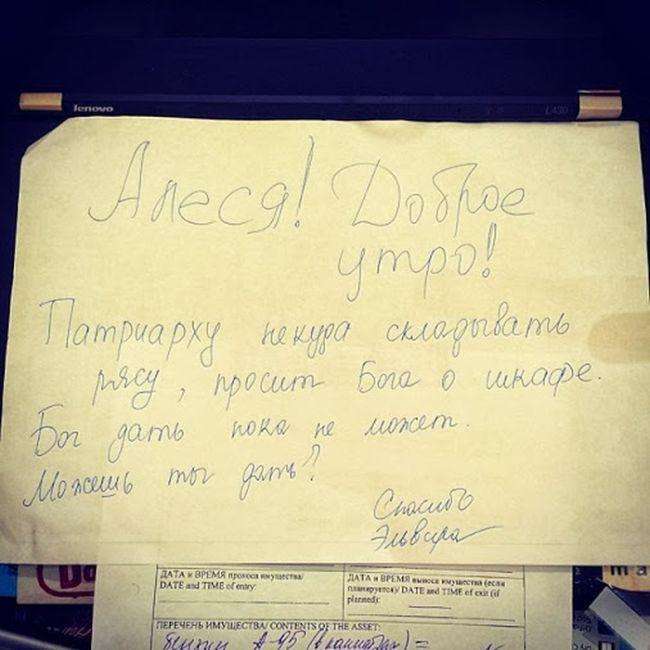 lenovo L430
Алеся! Доброе
утро!
Патриарху некуда складывать
рясу, просит Бога о шкафе.
Бог дать пока не может.
Можешь ты дать?
Спасибо
Эльвира
ДАТА и ВРЕМЯ проноса имущества/
DATE and TIME of entry:
ДАТА и ВРЕМЯ выноса имущества (если
планируется)/ DATE and TIME of exit (if
planned):
ПЕРЕЧЕНЬ ИМУЩЕСТВА/ CONTENTS OF THE ASSET:
бензин А-95 (в канистрах) =